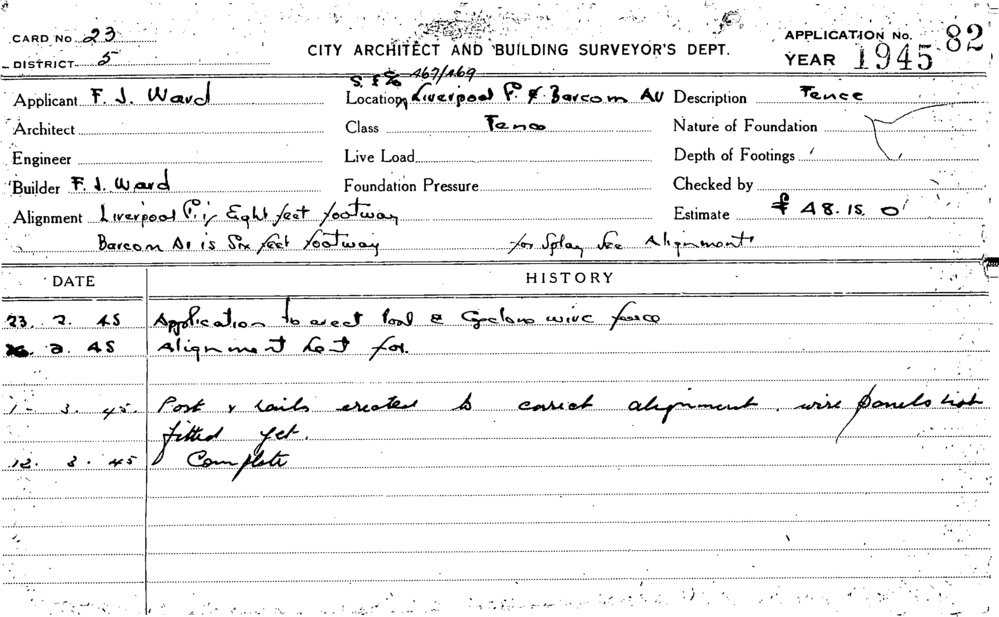 CARD No. 23
DISTRICT 5
CITY ARCHITECT AND BUILDING SURVEYOR'S DEPT.
APPLICATION No. 82
YEAR 1945
467/469
Applicant F. J. Ward
Location Liverpool & Barcom Av
Description Fence
Architect
Class Fence
Nature of Foundation
Engineer
Live Load
Depth of Footings
Builder F. J. Ward
Foundation Pressure
Checked by
Alignment Liverpool is Eight feet footway
Estimate £ 48. 15. 0
Barcom Av is Six feet footway for Splay See Alignment
DATE HISTORY
23. 2. 45 Application to erect & Cyclone wire fence
2. 45 Alignment for.
1 - 3. 45. Post & rails erected to correct alignment. wire panels not
fitted yet.
12. 3. 45 Complete